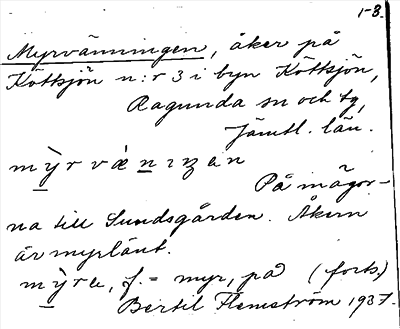 1-8.
Myrvänningen, åker på
Köttsjön n:r 3 i byn Köttsjön,
Ragunda sn och tg,
Jämtl. län.
mỳr væ̀nıŋan
På mågor-
na till Sundsgården. Åkern
är myrlänt.
mỳra, f. = myr, på (forts.)
Bertil Flemström 1937.